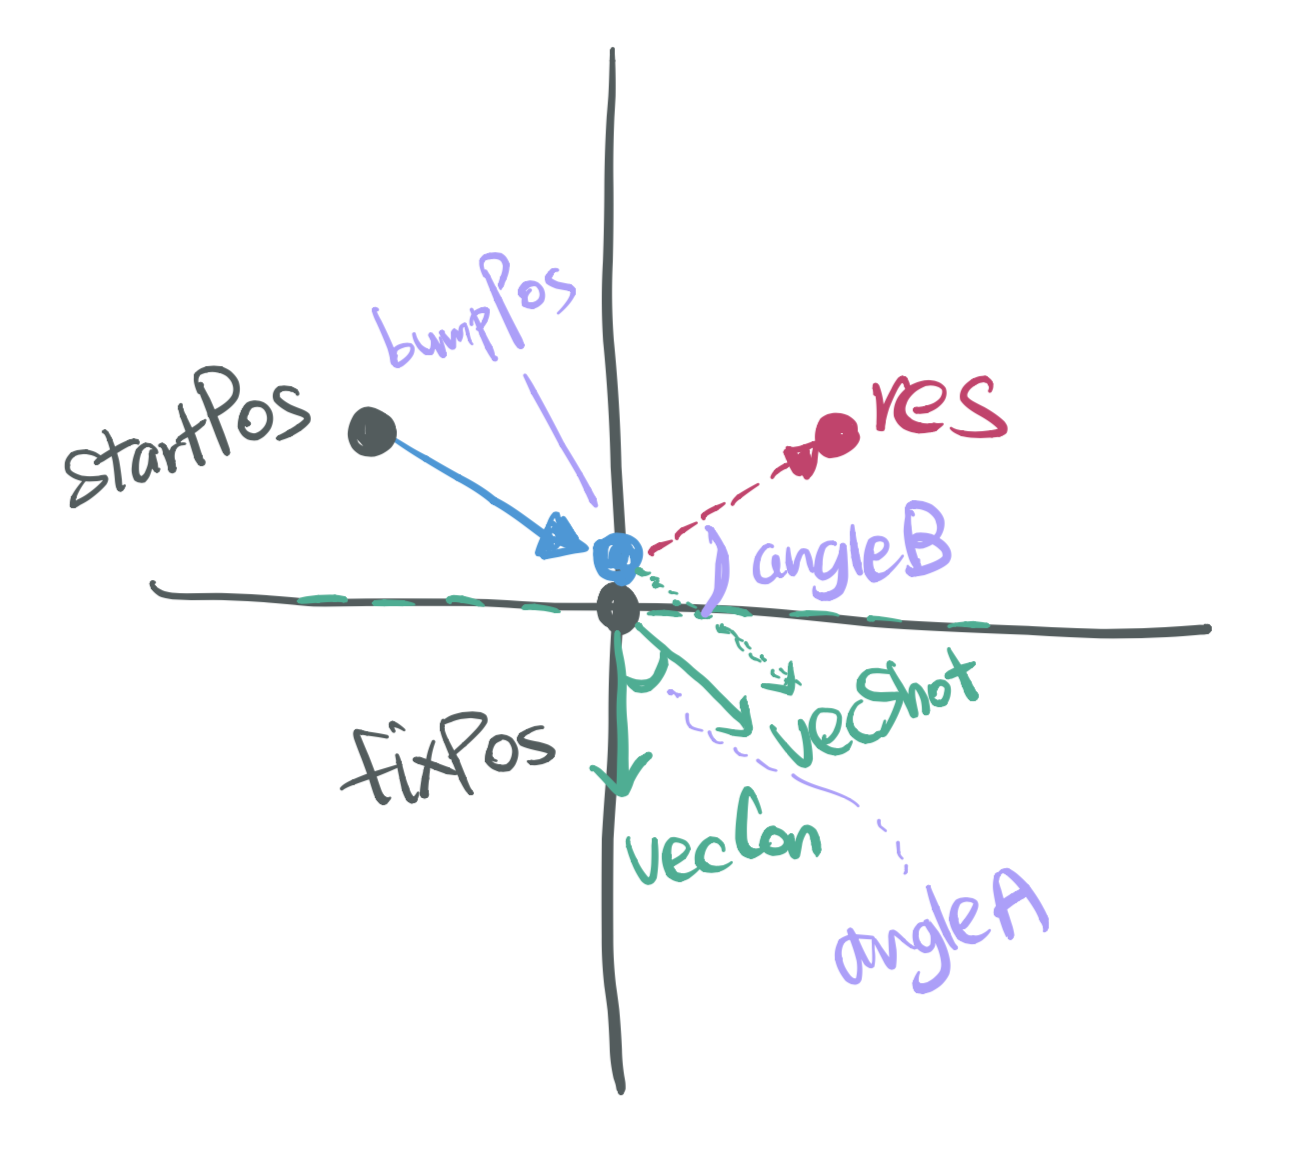 bumpPos
startPos
res
angleB
vecShot
fixPos
vecCon
angleA